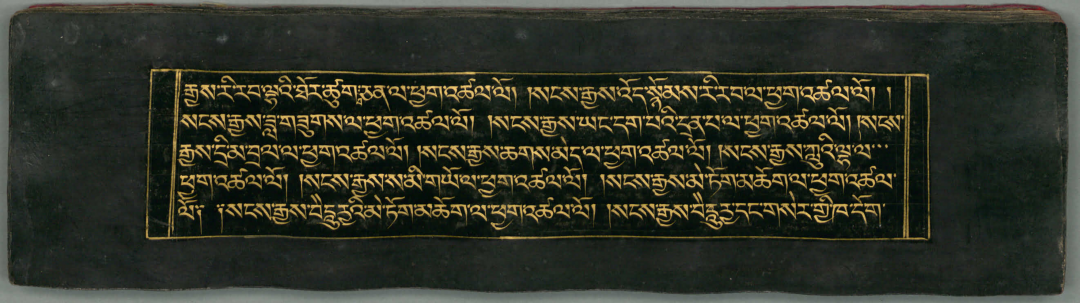 རྒྱས་རི་རབ་ལྟའི་ཐོར་ཚུགས་ཅན་ལ་ཕྱག་འཚལ་ལོ། །སངས་རྒྱས་འོད་སྙོམས་རི་རབ་ལ་ཕྱག་འཚལ་ལོ། །
སངས་རྒྱས་ཟླ་གཟུགས་ལ་ཕྱག་འཚལ་ལོ། །སངས་རྒྱས་ཡང་དག་པའི་དྲན་པ་ལ་ཕྱག་འཚལ་ལོ། །སངས་
རྒྱས་དྲི་མ་བྲལ་ལ་ཕྱག་འཚལ་ལོ། །སངས་རྒྱས་ཆགས་མེད་ལ་ཕྱག་འཚལ་ལོ། །སངས་རྒྱས་ཀླུའི་ལྷ་ལ་
ཕྱག་འཚལ་ལོ། །སངས་རྒྱས་ས་མི་གཡོ་ལ་ཕྱག་འཚལ་ལོ། །སངས་རྒྱས་མེ་ཏོག་མཆོག་ལ་ཕྱག་འཚལ་
ལོ། །སངས་རྒྱས་བཻ་ཌཱུརྱའི་མེ་ཏོག་མཆོག་ལ་ཕྱག་འཚལ་ལོ། །སངས་རྒྱས་བཻ་ཌཱུརྱ་དང་གསེར་གྱི་ཁ་དོག་